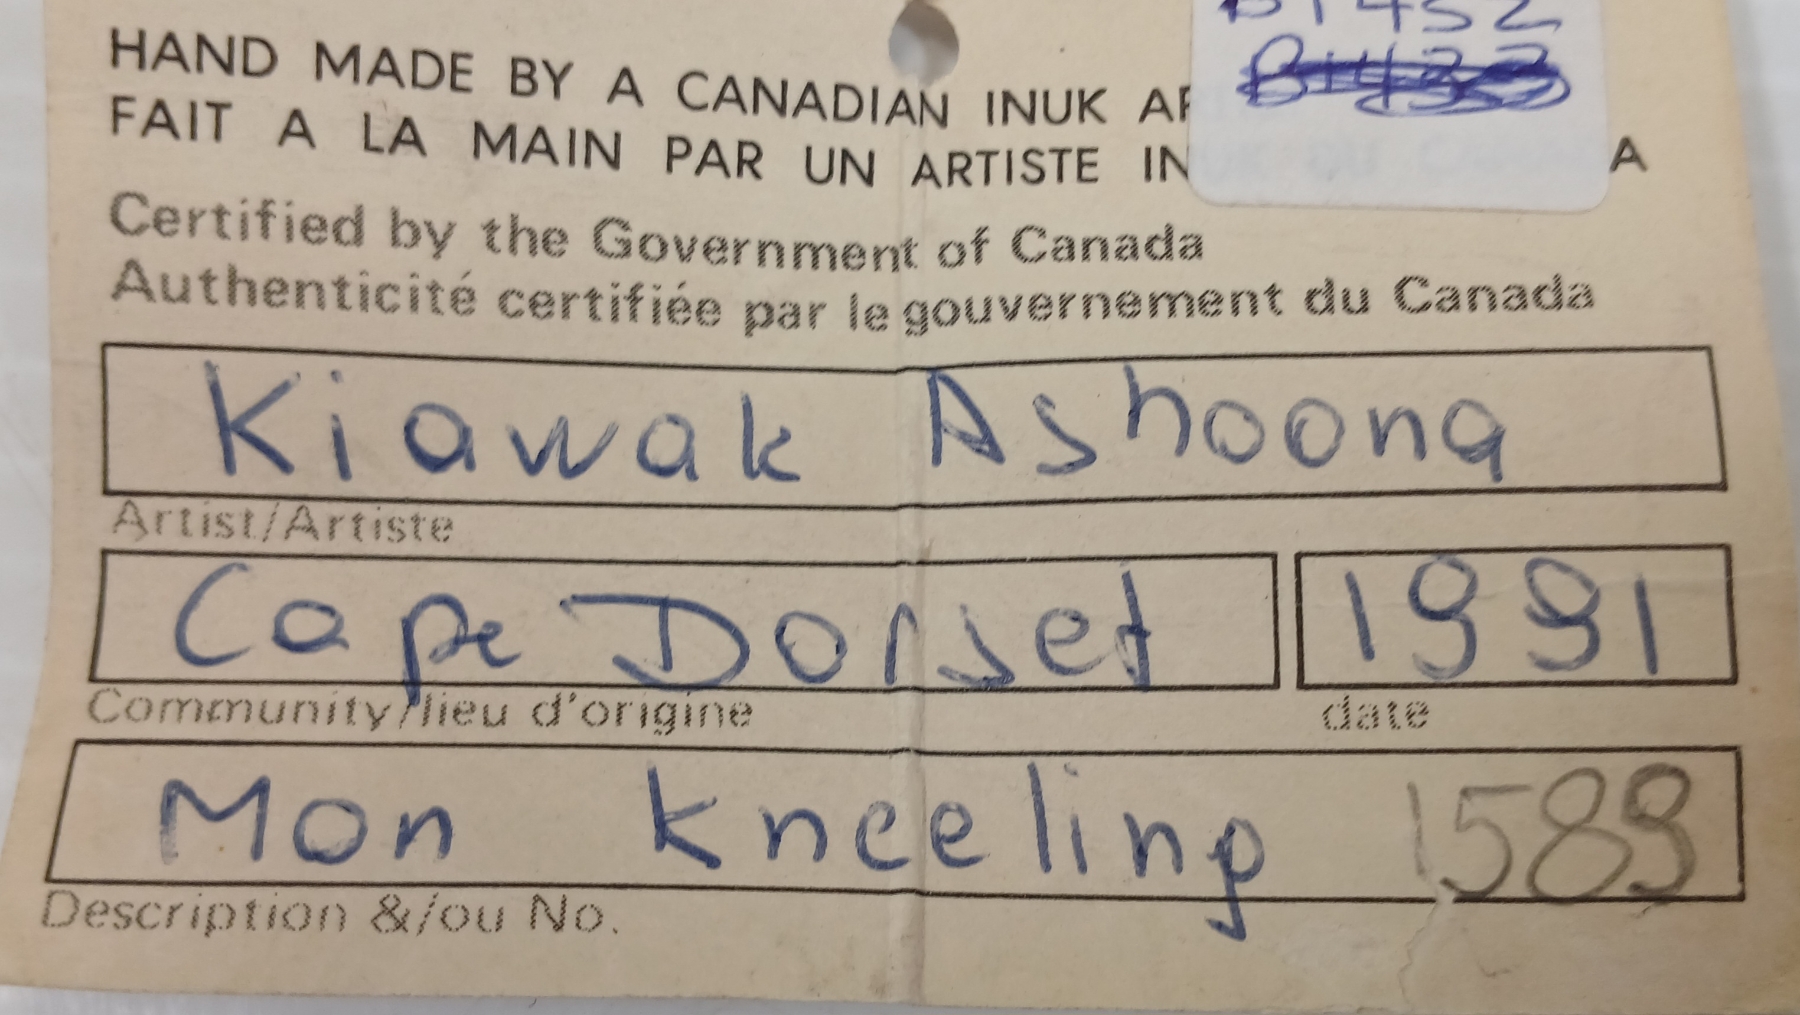 HAND MADE BY A CANADIAN INUK
FAIT A LA MAIN PAR UN ARTISTE
Certified by the Government of Canada
Authenticité certifiée par le gouvernement du Canada
Kiawak Ashoona
Artist/Artiste
Cape Dorset 1991
Community/lieu d'origine date
Man kneeling 1589
Description &/ou No.